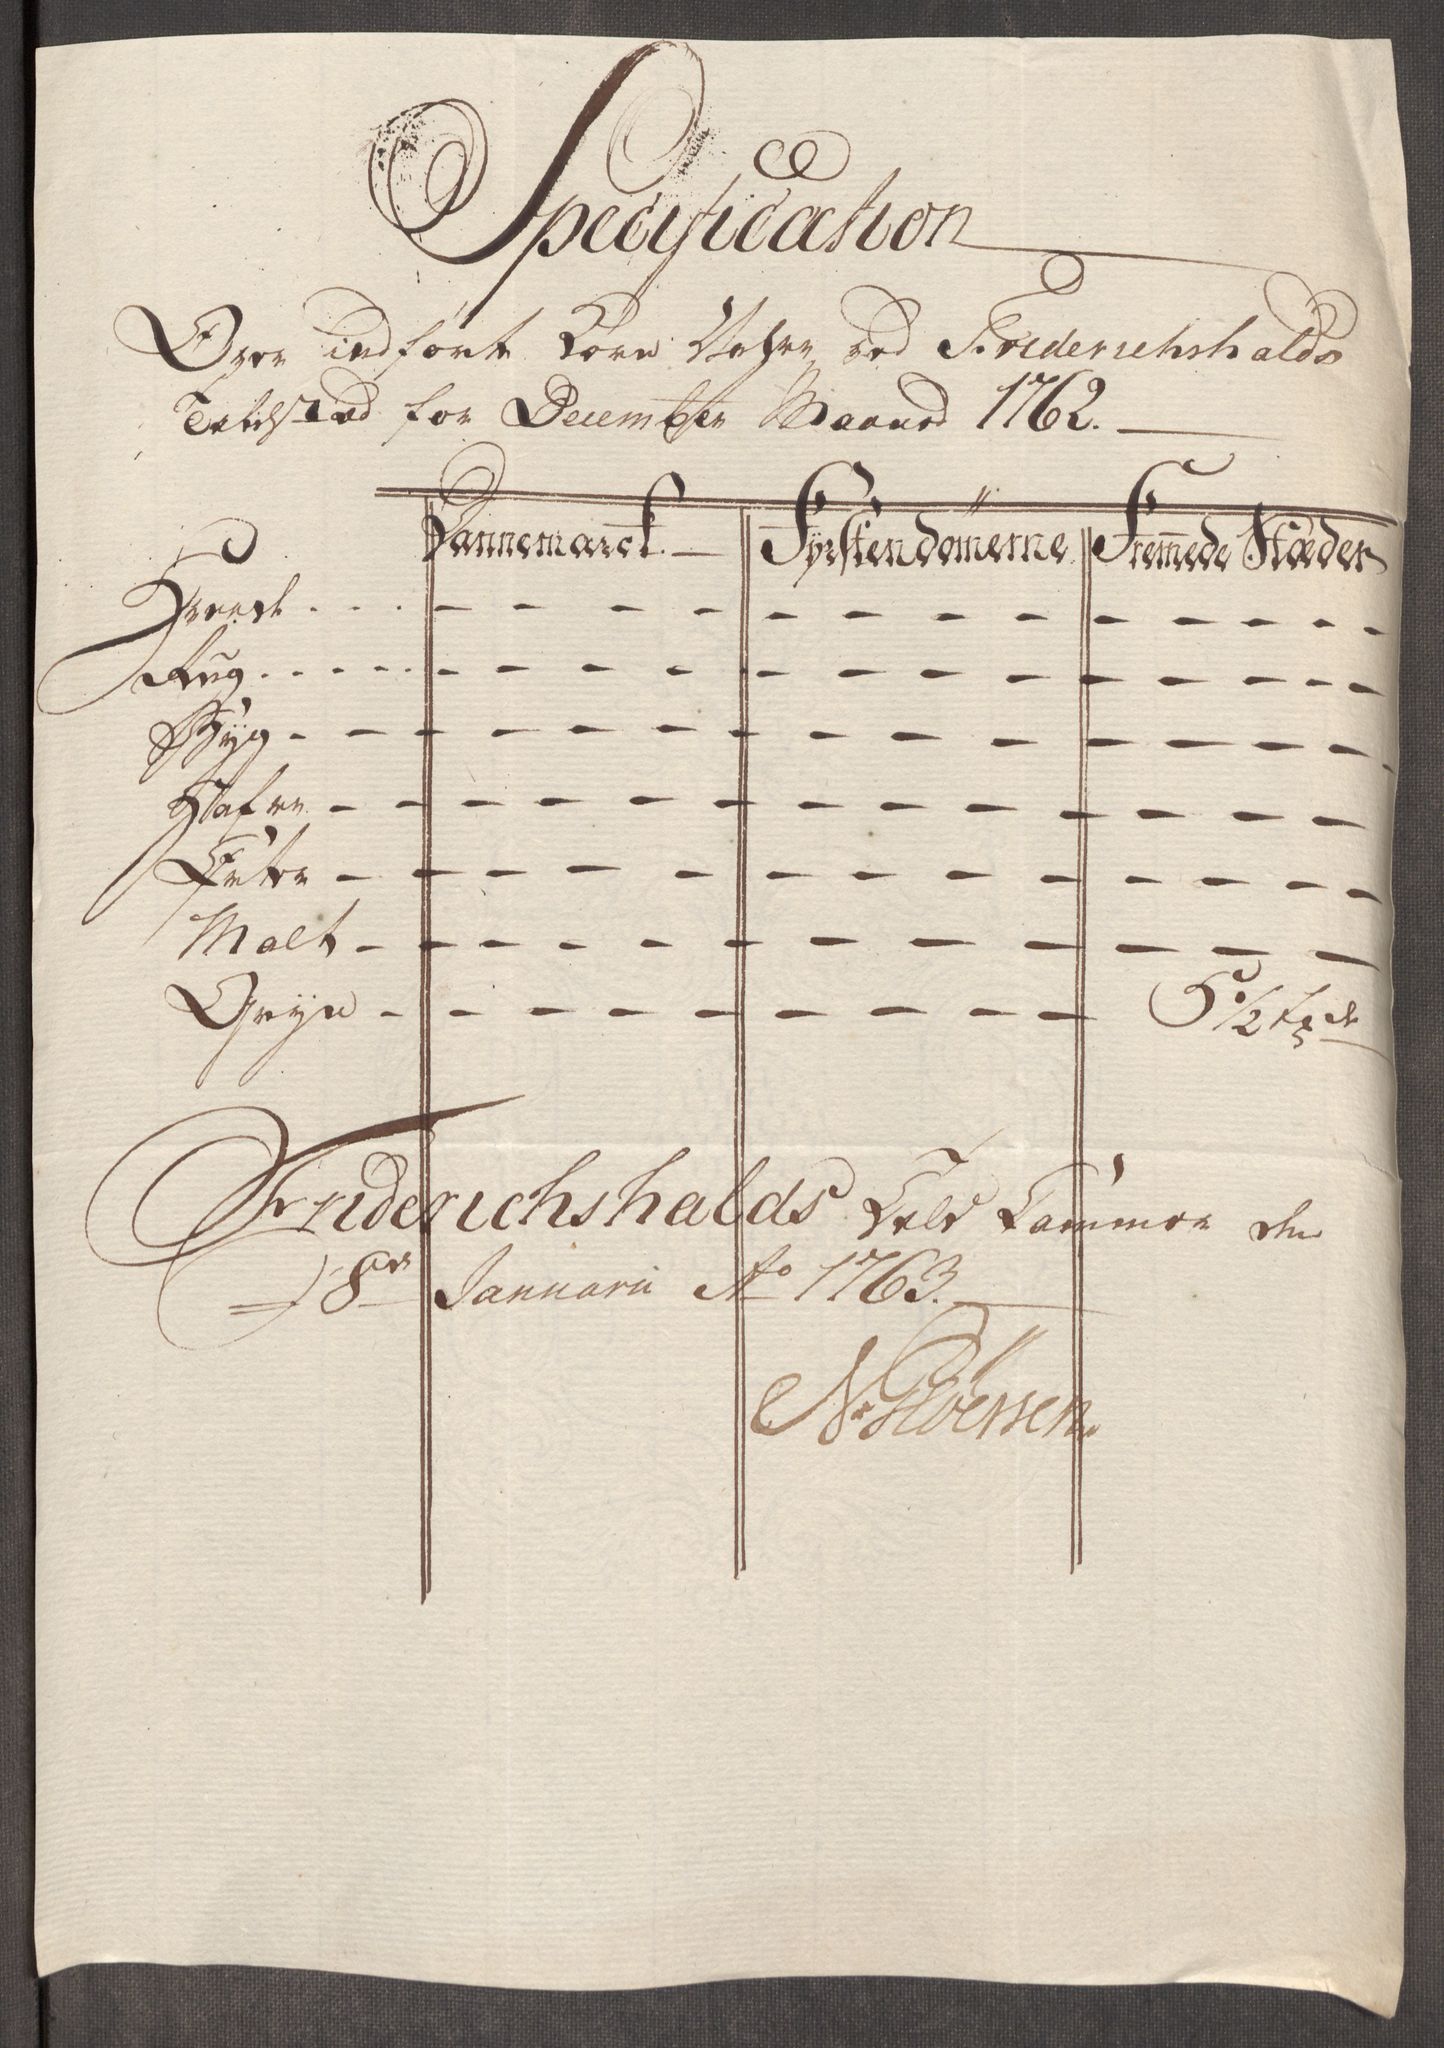 Specification
Over indført Korn Vahre ved Friderichshalds
Toldsted for December Maaned 1762.
Dannemarck Fyrstendømerne Fremmede Stæder
Hveede - - -
Rug - - -
Byg - - -
Hafre - - -
Erter - - -
Malt - - -
Gryn - - - 5 1/2 tde
Friderichshalds Told Kammer den
8de Januarii Ao 1763.